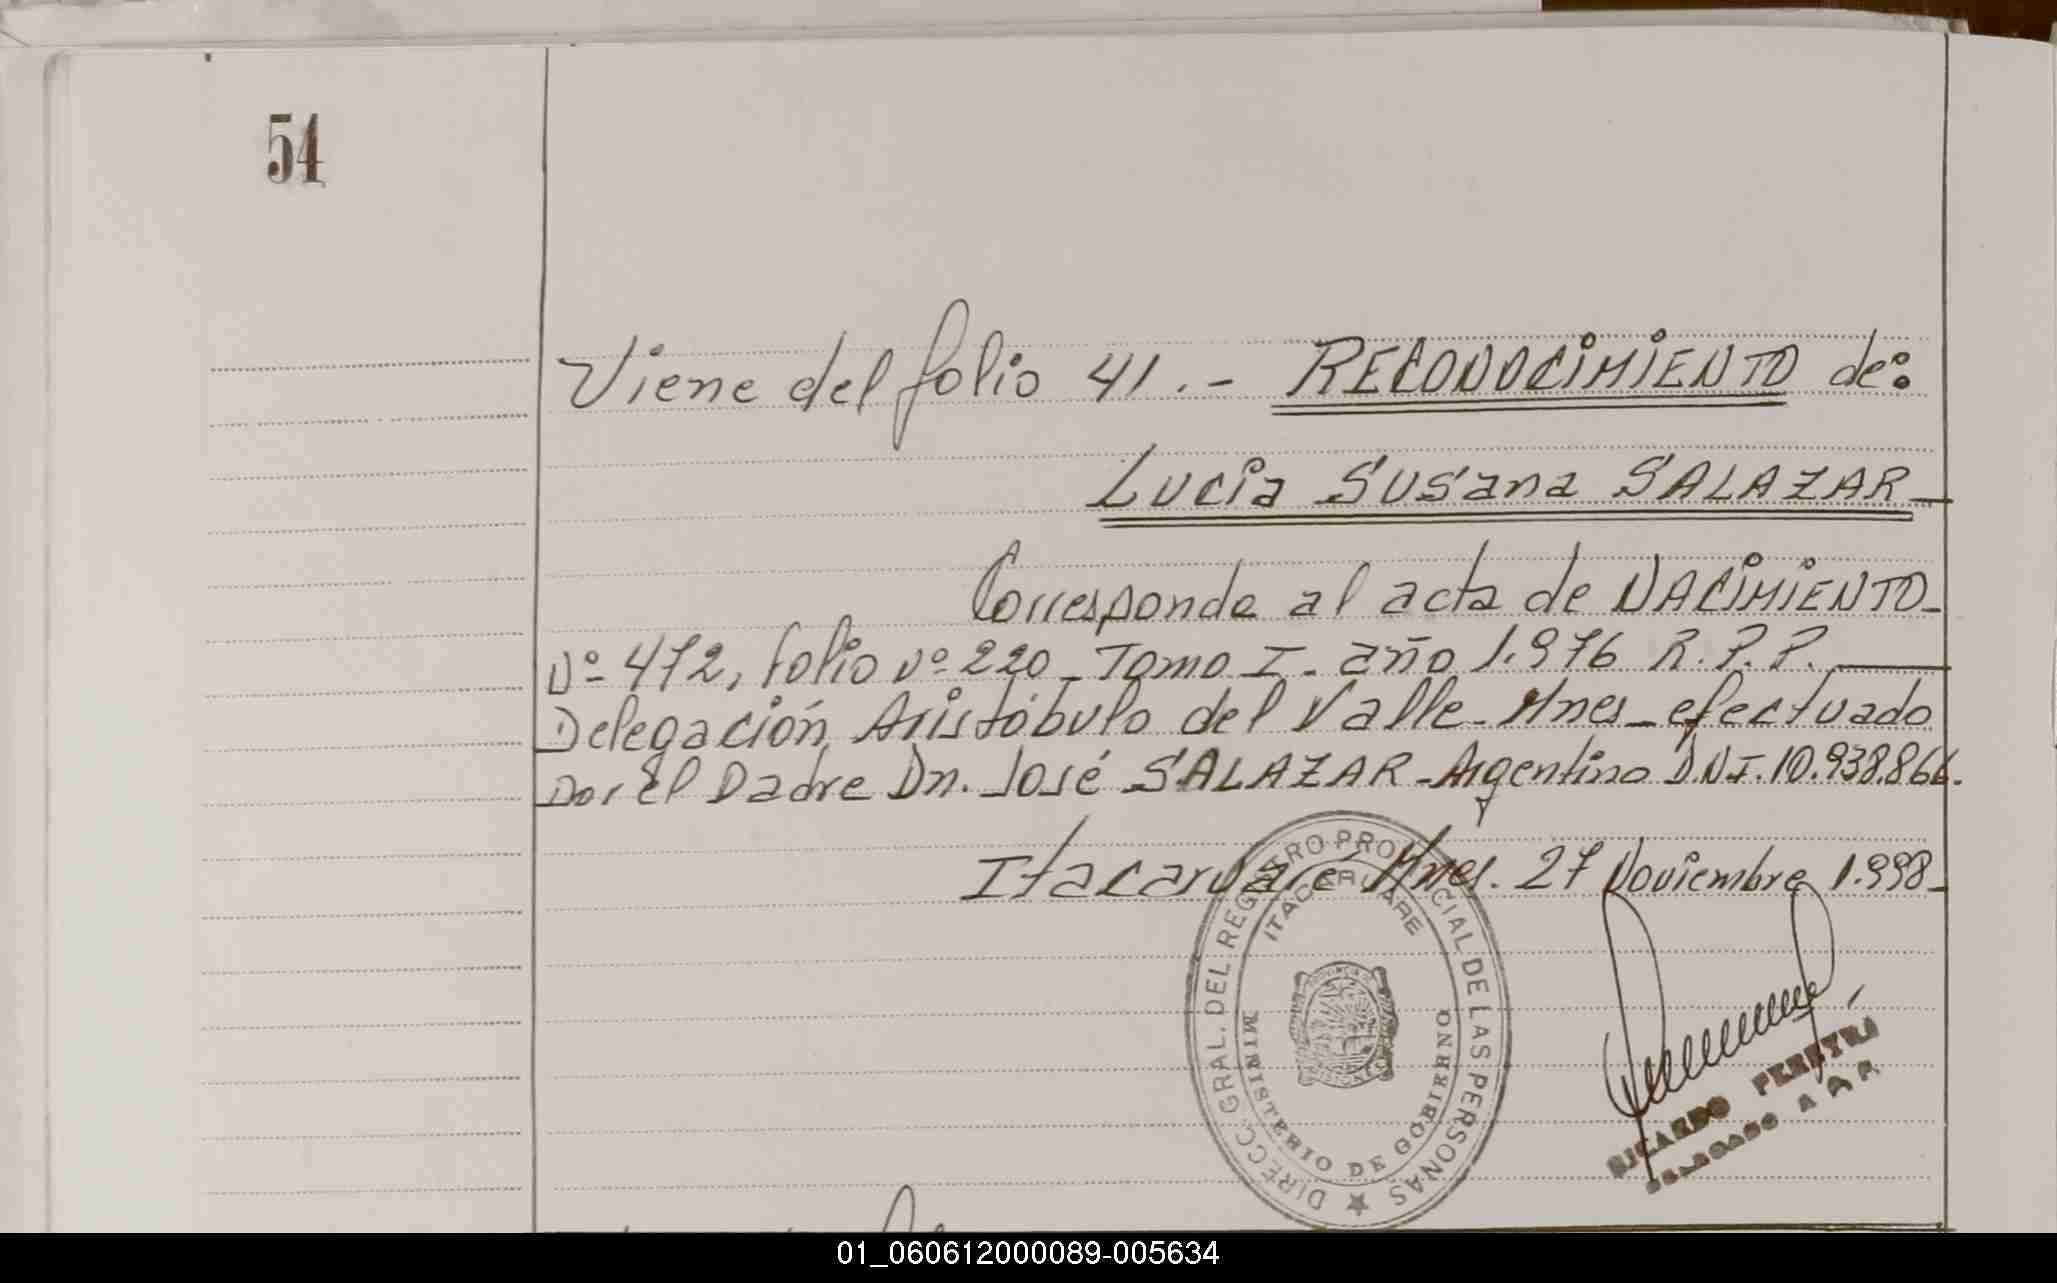 54
Viene del folio 41.- RECONOCIMIENTO de:
Lucia Susana SALAZAR
Corresponde al acta de NACIMIENTO-
Nº 472, folio Nº 220 - Tomo I - año 1.976 R.P.P.
Delegación Aristóbulo del Valle - Mnes - efectuado
por el Padre Dn. José SALAZAR - Argentino D.N.I. 10.938.866.
Itacaruaré Mnes. 27 Noviembre 1.998-
DIRECC. GRAL. DEL REGISTRO PROVINCIAL DE LAS PERSONAS
ITACARUARE
MINISTERIO DE GOBIERNO
RICARDO PEREYRA
01_060612000089-005634